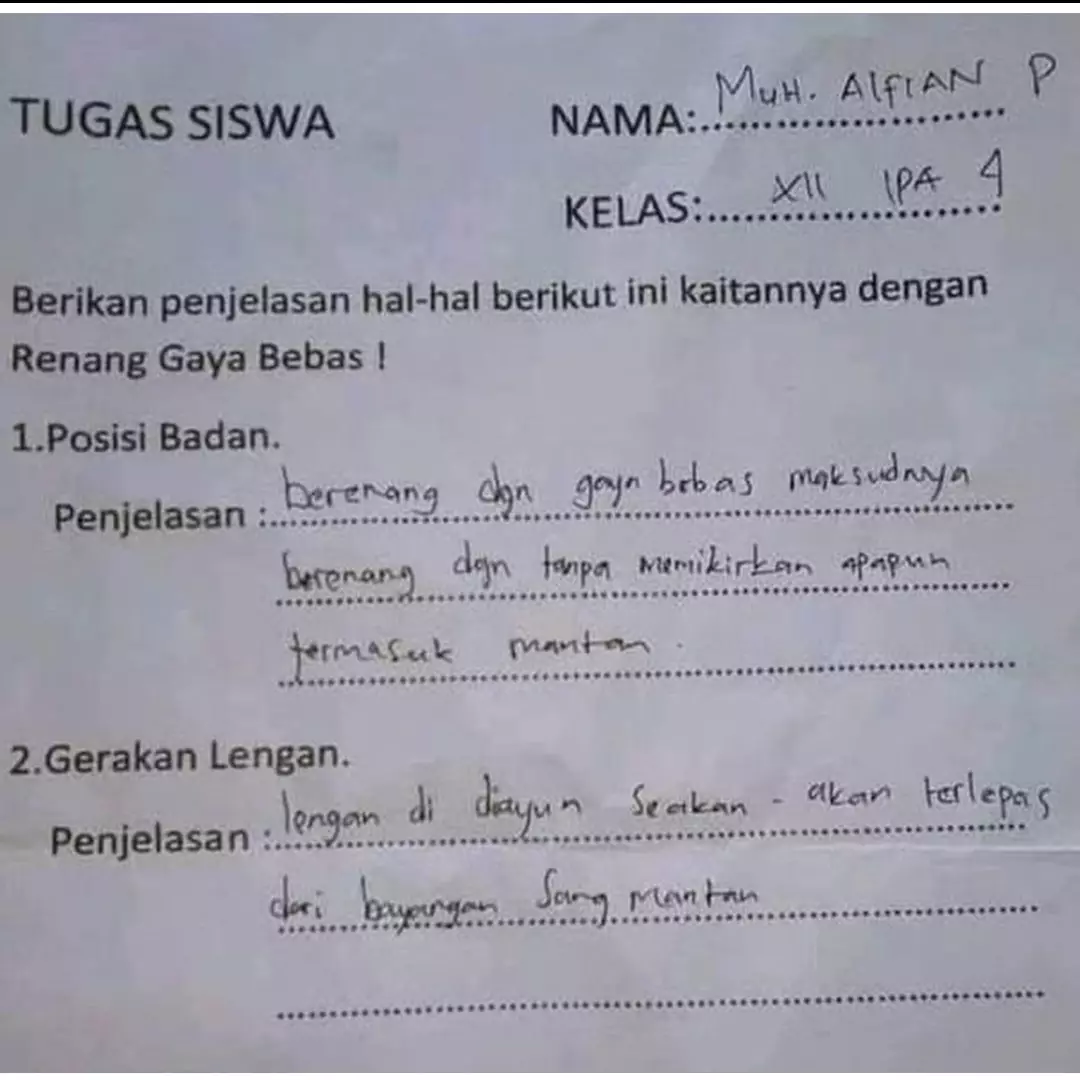 TUGAS SISWA
NAMA: MUH. ALFIAN P
KELAS: XII IPA 4
Berikan penjelasan hal-hal berikut ini kaitannya dengan
Renang Gaya Bebas !
1.Posisi Badan.
Penjelasan : berenang dgn gaya bebas maksudnya
berenang dgn tanpa memikirkan apapun
termasuk mantan.
2.Gerakan Lengan.
Penjelasan : lengan di diayun seakan - akan terlepas
dari bayangan sang mantan